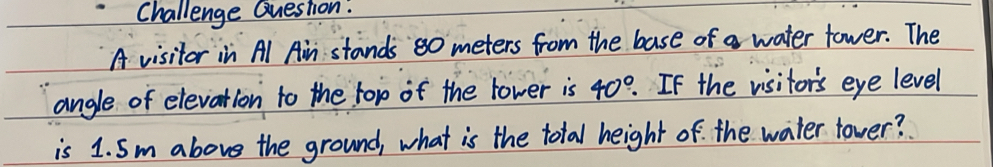 Challenge Question:
A visitor in Al Ain stands 80 meters from the base of a water tower. The
angle of elevation to the top of the tower is 40°. If the visitor's eye level
is 1.5m above the ground, what is the total height of the water tower?